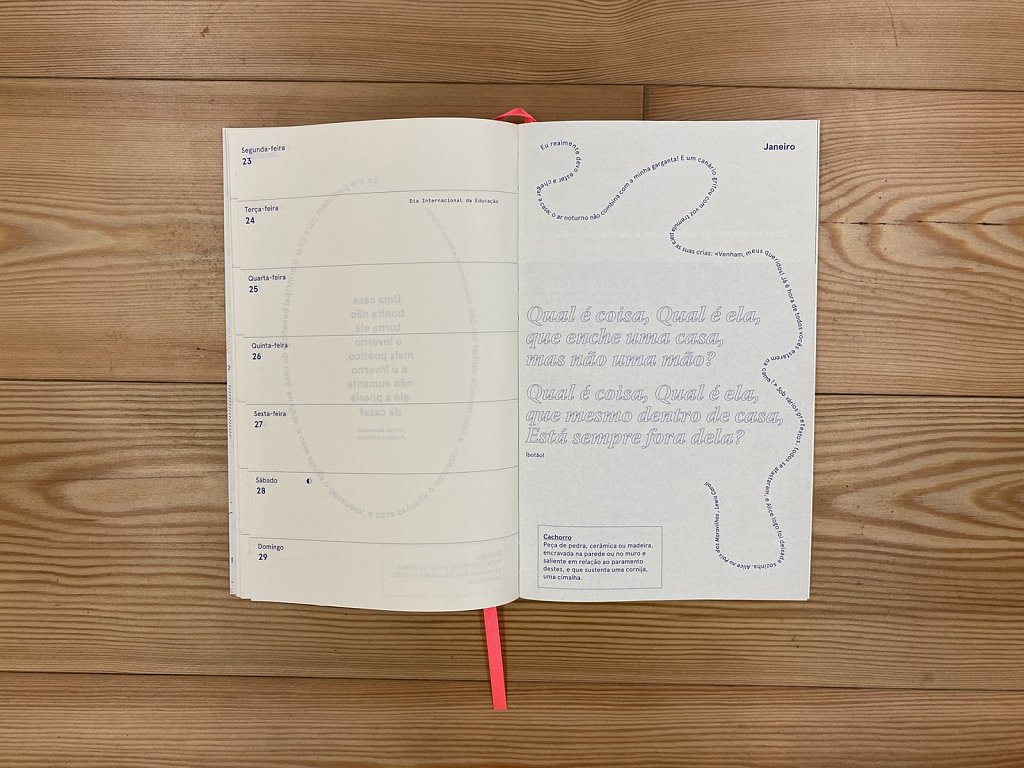 Segunda-feira
23
Terça-feira
24
Dia Internacional da Educação
Quarta-feira
25
Quinta-feira
26
Sexta-feira
27
Sábado
28
Domingo
29
Janeiro
Eu realmente devo estar a chegar a casa: o ar noturno não combina com a minha garganta! E um canário gritou com voz tremula para as suas crias: «Venham, meus queridos! Já é hora de todos vocês estarem na cama!» Sob vários pretextos, todos se afastaram, e Alice logo foi deixada sozinha. Alice no País das Maravilhas, Lewis Carroll
Qual é coisa, Qual é ela,
que enche uma casa,
mas não uma mão?
Qual é coisa, Qual é ela,
que mesmo dentro de casa,
Está sempre fora dela?
(botão)
Cachorro
Peça de pedra, cerâmica ou madeira,
encravada na parede ou no muro e
saliente em relação ao paramento
destes, e que sustenta uma cornija,
uma cimalha.